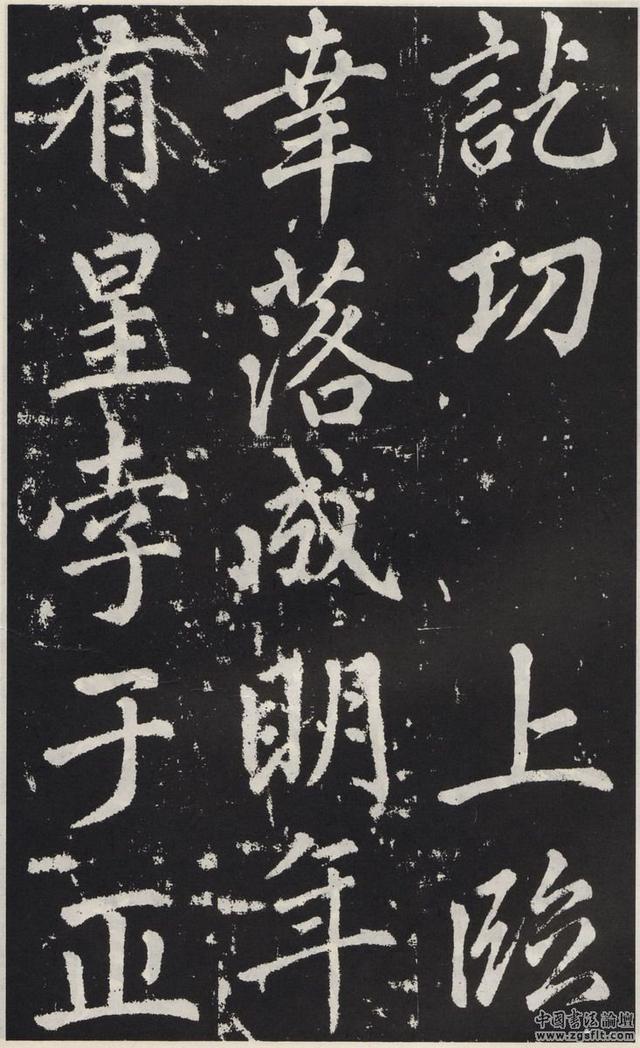 訖功 上臨
幸落成明年
有星孛于正
中國書法論壇
www.zgsflt.com